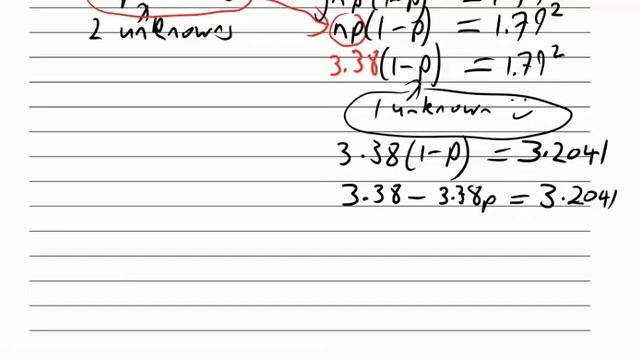 2 unknowns
np(1-p) = 1.79²
3.38(1-p) = 1.79²
1 unknown
3.38(1-p) = 3.2041
3.38 - 3.38p = 3.2041